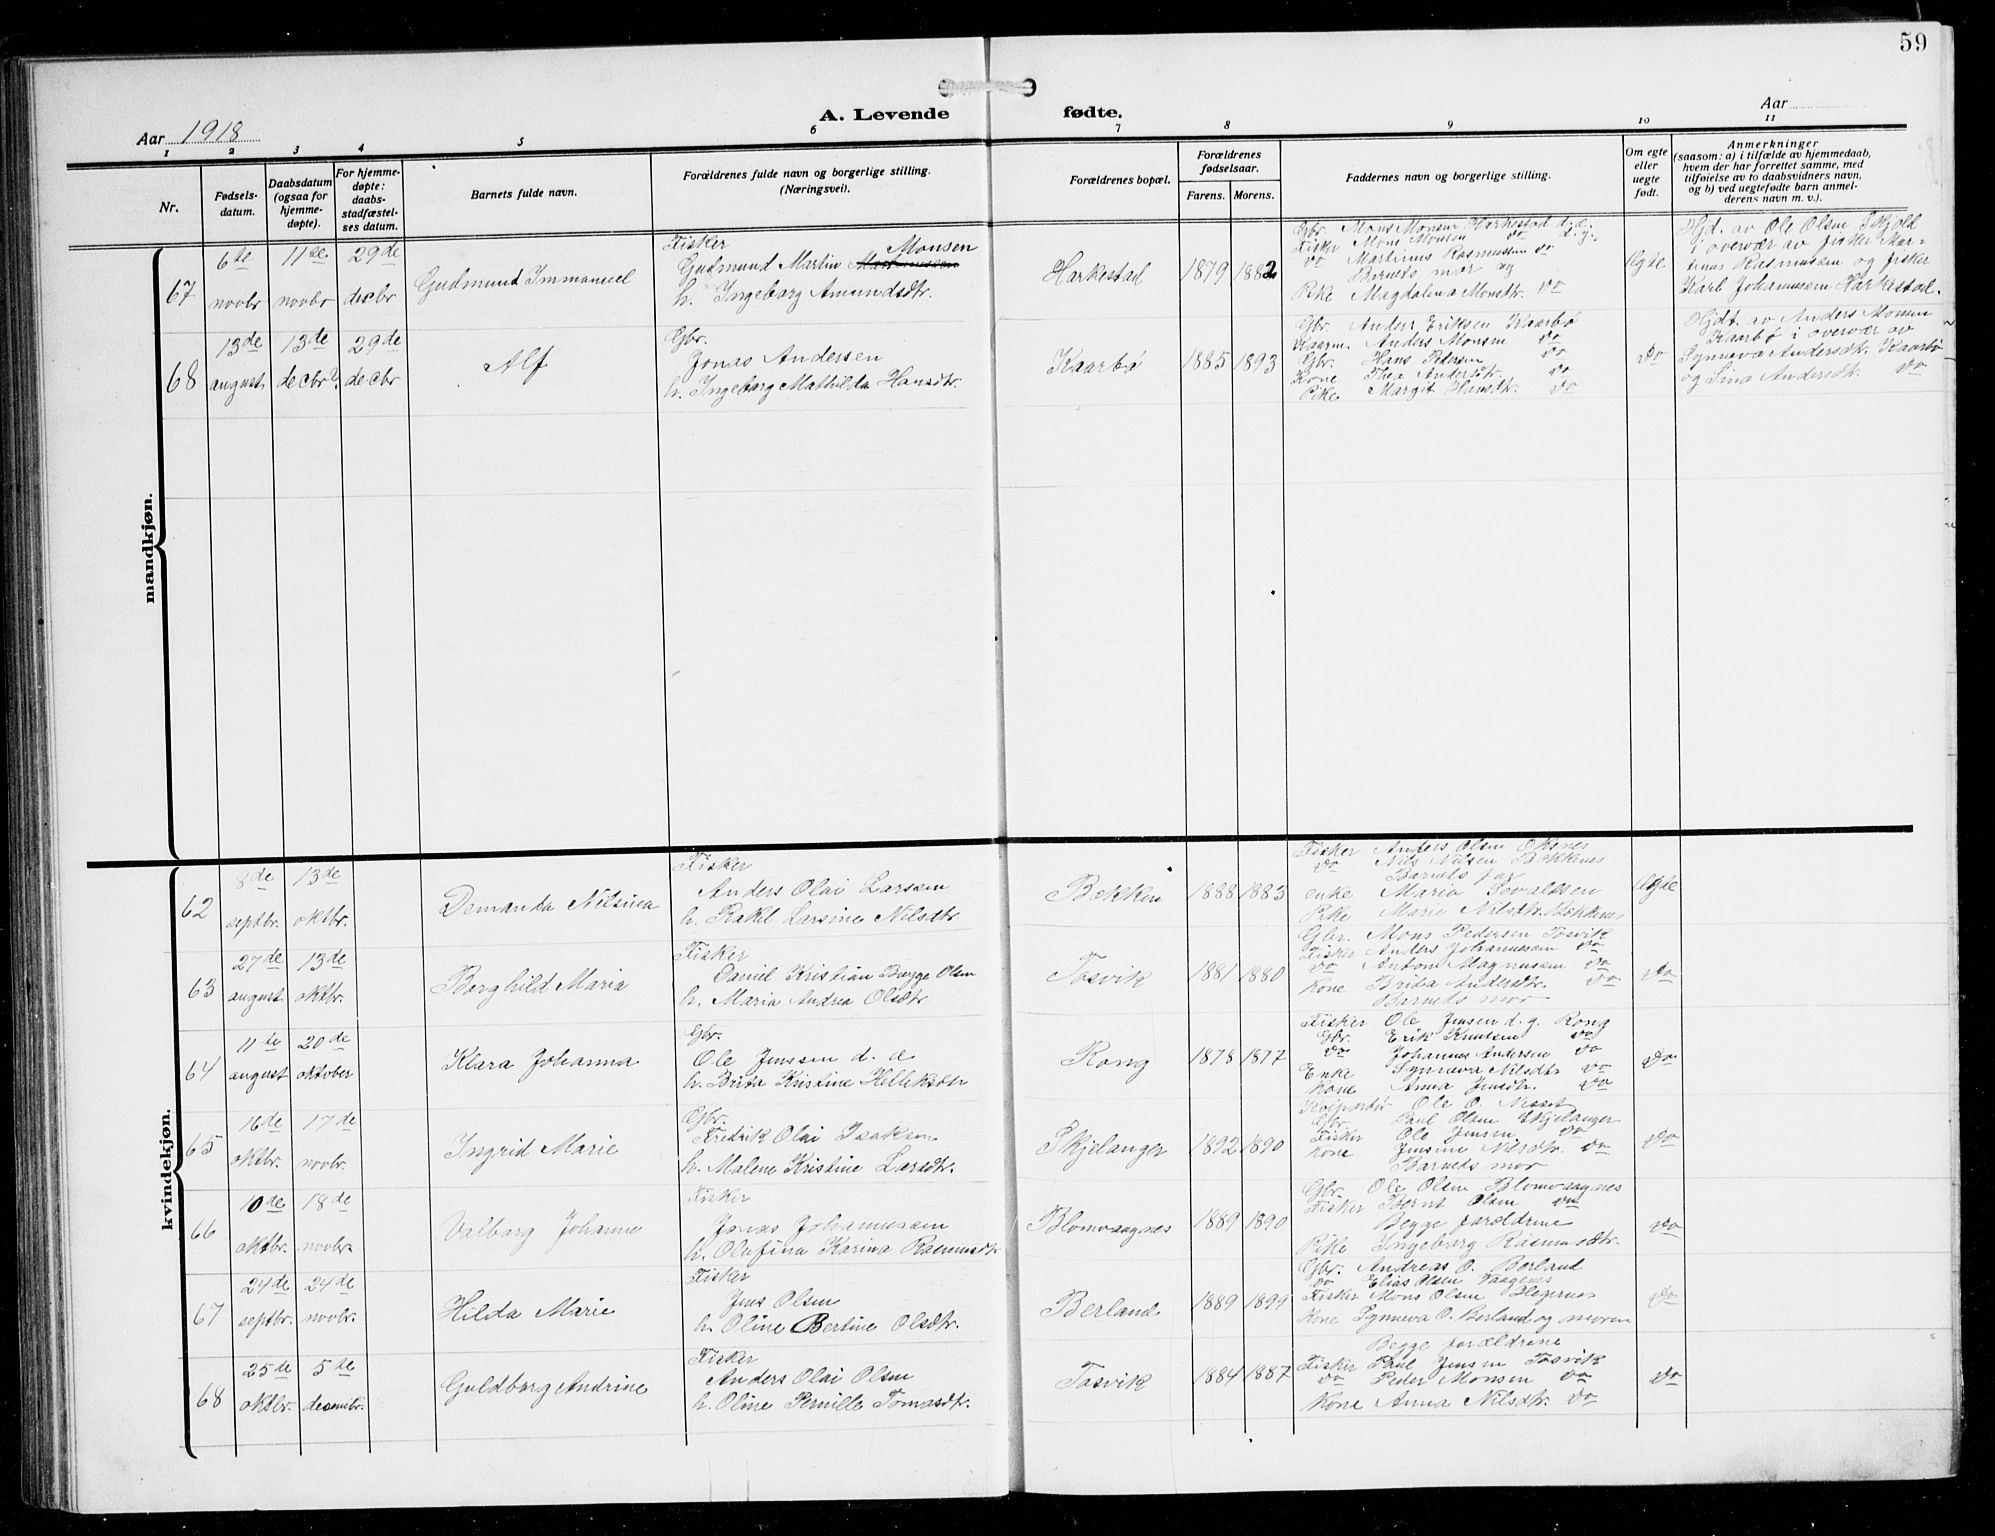 59
Aar 1918
A. Levende
fødte.
Aar
1 2 3 4 5 6 7 8 9 10 11
Nr.
Fødsels-
datum.
Daabsdatum
(ogsaa for
hjemme-
døpte).
For hjemme-
døpte:
daabs-
stadfæstel-
ses datum.
Barnets fulde navn.
Forældrenes fulde navn og borgerlige stilling.
(Næringsvei).
Forældrenes bopæl.
Forældrenes
fødselsaar.
Farens. Morens.
Faddernes navn og borgerlige stilling.
Om egte
eller
uegte
født.
Anmerkninger
(saasom: a) i tilfælde av hjemmedaab,
hvem der har forrettet samme, med
tilføielse av to daabsvidners navn,
og b) ved uegtefødte barn anmel-
derens navn m. v.).
mandkjøn.
67
6te
novbr
11te
novbr
29de
decbr
Gudmund Immanuel
Fisker
Monsen
Gudmund Martin
h. Ingeborg Amundsdtr.
Harkestad
1879
1882
Gbr. Mons Monsen Harkestad
Fisker Mons Monsen do
do Martinus Rasmussen do
Barnets mor og
Pike Magdalina Monsdtr. do
Egte
Hjd. av Ole Olsen Skjold
i overvær av fisker Mar-
tinus Rasmussen og fisker
Karl Johannessen Harkestad.
68
13de
august
13de
decbr
29de
decbr
Alf
Gbr.
Jonas Andersen
h. Ingeborg Mathilda Hansdtr.
Kaarbø
1885
1893
Gbr. Anders Eriksen Kaarbø
Kaarm. Anders Monsen do
Gbr. Hans Petersen do
Kone Thea Andersdtr. do
Pike Margit Hansdtr. do
do
Hjdt. av Anders Monsen
Kaarbø i overvær av
Synneva Andersdtr. Kaarbø
og Sina Andersdtr. do
kvindekjøn.
62
8de
septbr.
13de
oktbr.
Demanda Nilsina
Fisker
Anders Olai Larsen
h. Rakel Larsine Nilsdtr
Bekken
1888
1883
Fisker Anders Olsen Oksnes
do Nils Nilsen Bekknes
Barnets far
enke Maria Sevaldsen
Pike Marie Nilsdtr. Bekknes
Egte
63
27de
august
13de
oktbr.
Borghild Maria
Fisker
Daniel Kristian Bugge Olsen
h. Maria Andrea Olsdtr
Tosvik
1881
1880
Gbr. Mons Pedersen Tosvik
Fisker Anders Johannessen do
do Anton Magnussen do
Kone Brita Andersdtr. do
Barnets mor
do
64
11te
august
20de
oktober
Klara Johanna
Gbr.
Ole Jenssen d. æ
h. Brita Kristine Helleksdtr
Rong
1878
1877
Fisker Ole Jensen d. y. Rong
Gbr. Erik Knutsen do
do Johannes Andersen do
Enke Synneva Nilsdtr do
Kone Anna Jensdtr. do
do
65
16de
oktbr.
17de
novbr.
Ingrid Marie
Gbr.
Fredrik Olai Isaksen
h. Malene Kristine Larsdtr.
Skjelanger
1892
1890
Kolportør Ole O. Nesset
Gbr. Paul Olsen Skjelanger
Fisker Ole Jensen do
Kone Jensine Nilsdtr. do
Barnets mor
do
66
10de
oktbr.
18de
novbr.
Valborg Johanne
Fisker
Jonas Johannessen
h. Olufina Karina Rasmusdtr
Blomvaagnes
1889
1890
Gbr. Ole Olsen Blomvaagnes
Fisker Bernt Olsen do
Begge forældrene
Pike Ingeborg Rasmusdtr.
do
67
24de
septbr.
24de
novbr.
Hilda Marie
Fisker
Jens Olsen
h. Oline Bertine Olsdtr.
Berland
1889
1899
Gbr. Andreas O. Berland
do Elias Olsen
Fisker Mons Olsen
Kone Synneva O. Berland og moren
do
68
25de
oktbr.
5te
desembr.
Guldborg Andrine
Fisker
Anders Olai Olsen
h. Oline Pernille Tomasdtr.
Tosvik
1884
1887
Begge forældrene
Fisker Paul Jensen Tosvik
do Peder Monsen do
Kone Anna Nilsdtr. do
do